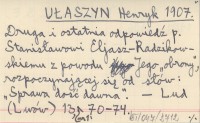 UŁASZYN Henryk 1907.
Druga i ostatnia odpowiedź p.
Stanisławowi Eljasz-Radzikow-
skiemu z powodu Jego „obrony,
rozpoczynającej się od słów:
„Sprawa dość dawna". — Lud
(Lwów) 13 70-74.